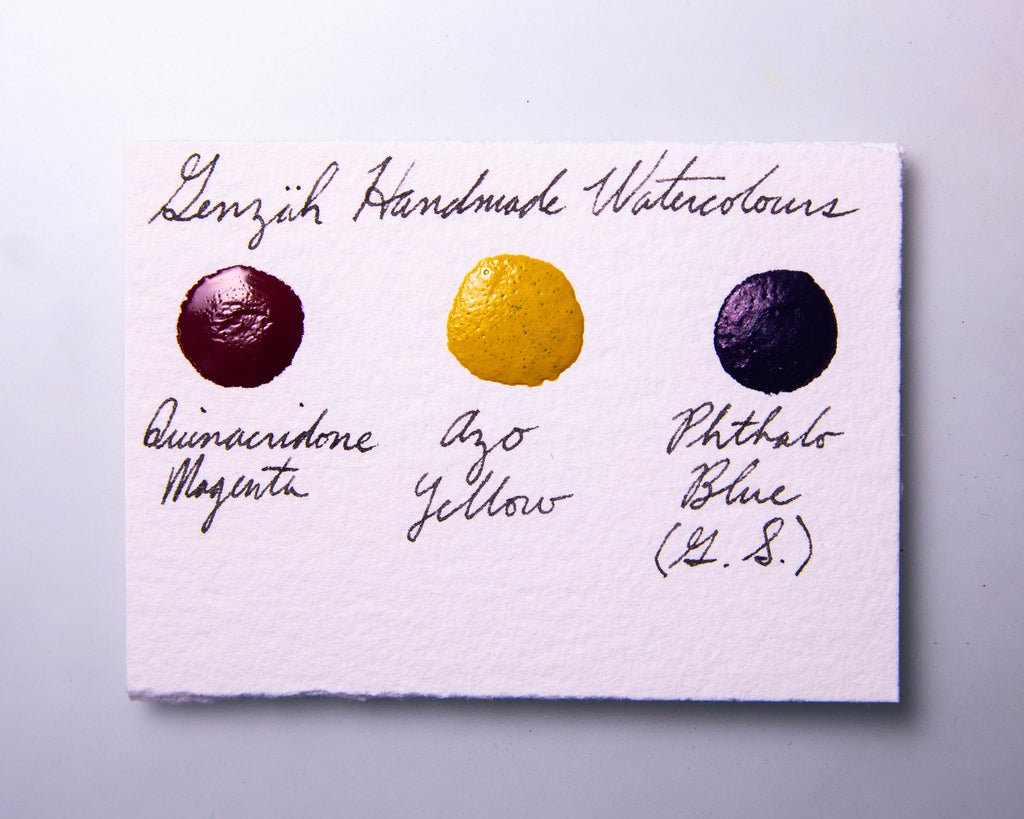 Genzäh Handmade Watercolours
Quinacridone Azo Phthalo
Magenta Yellow Blue
(G. S.)